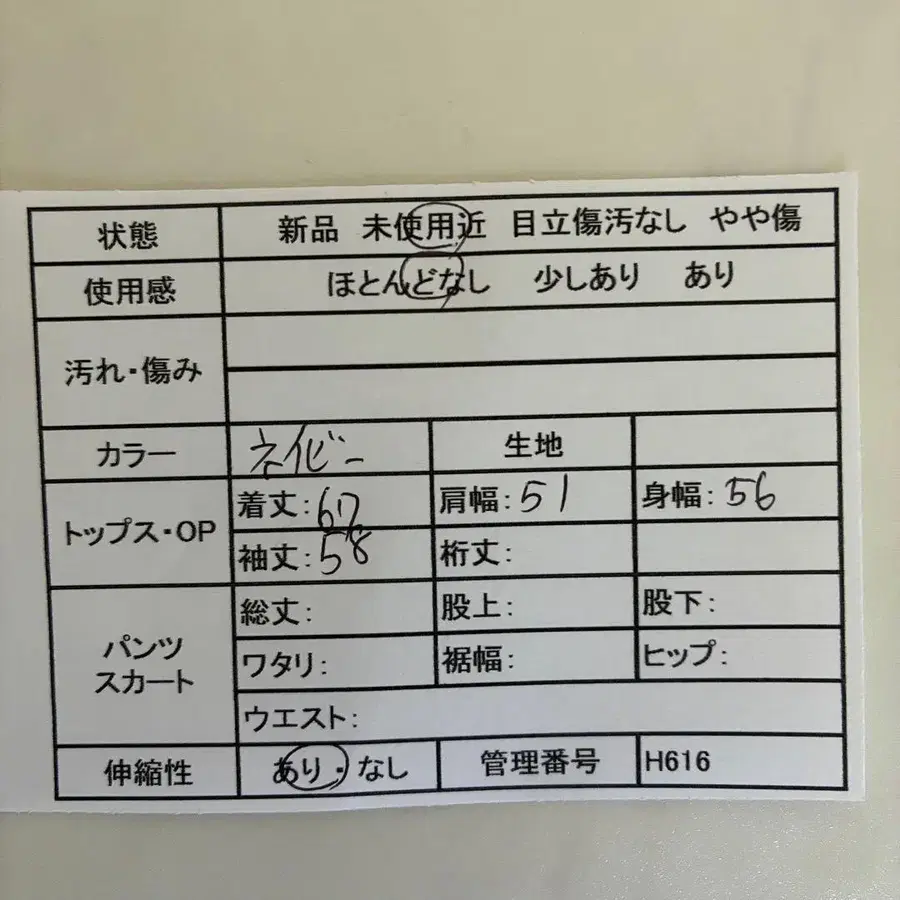 状態 新品 未使用近 目立傷汚なし やや傷
使用感 ほとんどなし 少しあり あり
汚れ・傷み
カラー ネイビー 生地
トップス・OP 着丈:67 肩幅:51 身幅:56
袖丈:58 裄丈:
パンツ スカート 総丈: 股上: 股下:
ワタリ: 裾幅: ヒップ:
ウエスト:
伸縮性 あり・なし 管理番号 H616